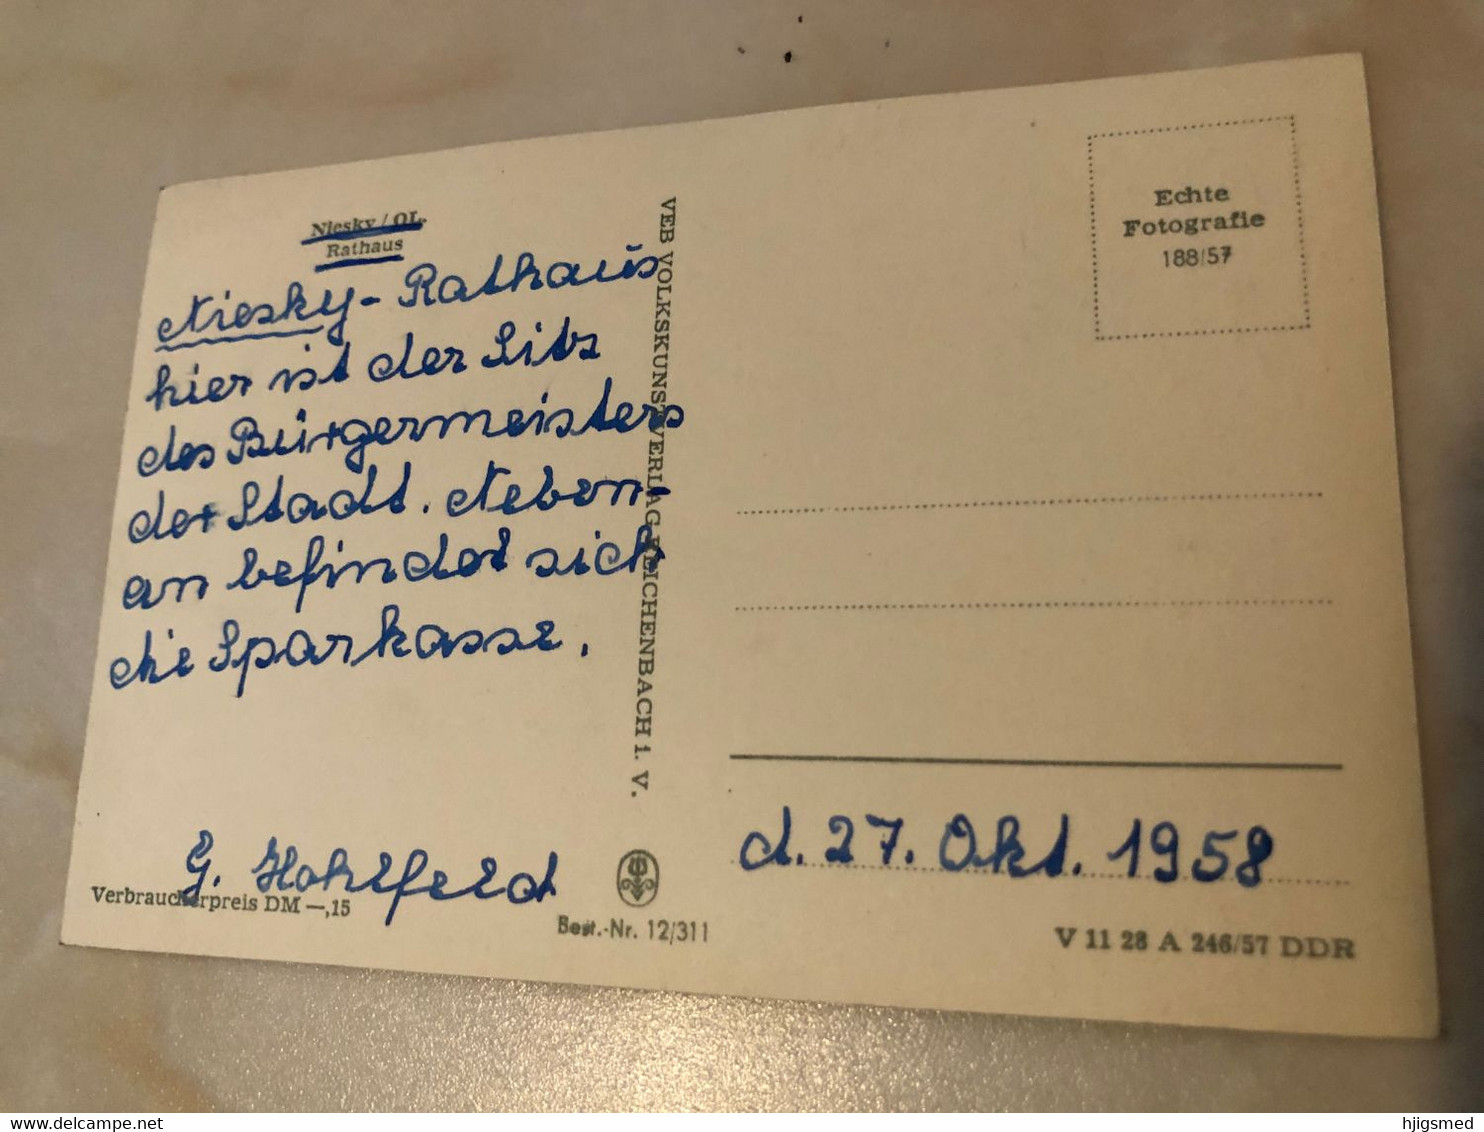 Niesky / OL.
Rathaus
Niesky - Rathaus
hier ist der Sitz
des Bürgermeisters
der Stadt. Neben-
an befindet sich
die Sparkasse.
G. Hohlfeld
Verbraucherpreis DM —,15
VEB VOLKSKUNSTVERLAG REICHENBACH i. V.
Best.-Nr. 12/311
Echte
Fotografie
188/57
d. 27. Okt. 1958
V 11 28 A 246/57 DDR
https://www.delcampe.net
hjlgsmed